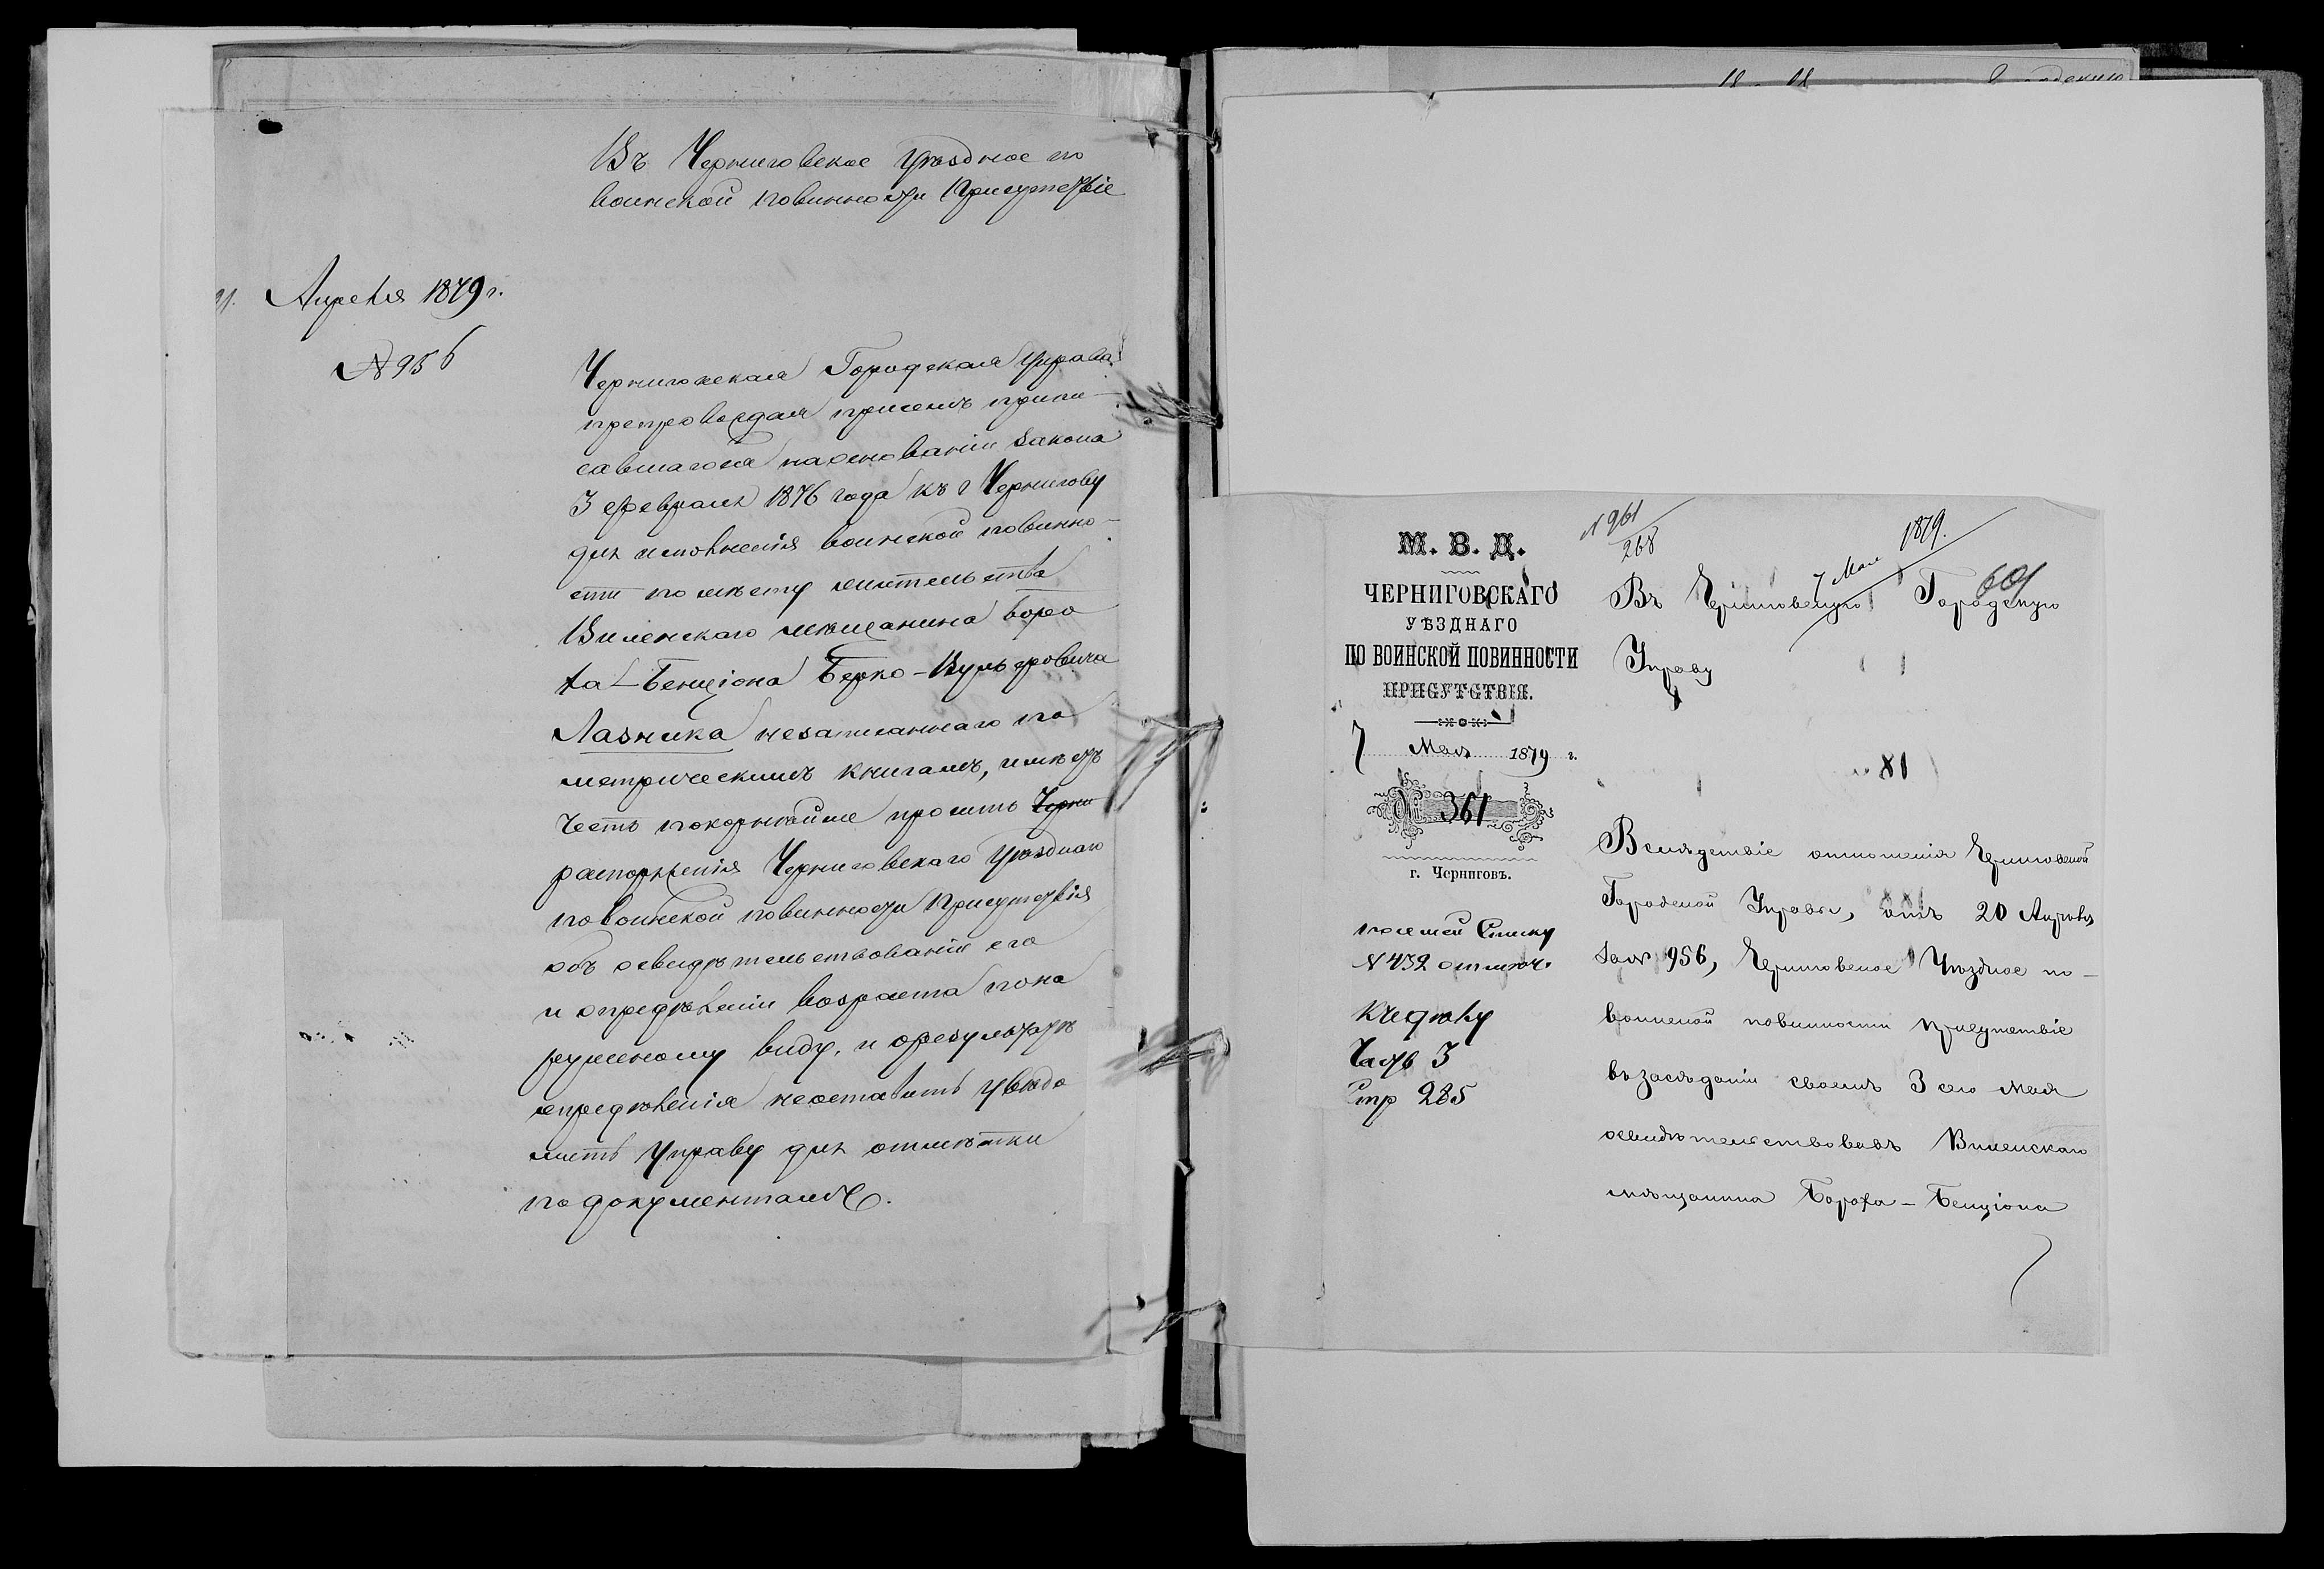 Въ Черниговское Уѣздное по
воинской повинности Присутствіе
Апреля 1879 г.
№ 956
Черниговская Городская Управа
препровождая присемъ припи-
савшагося наосновании закона
3 февраля 1876 года къ г Чернигову
для исполненія воинской повинно-
сти по мѣсту жительства
Виленскаго мѣщанина Боро
ха-Бенціона Берко-Вульфовича
Лазника незаписаннаго по
метрическимъ книгамъ, имѣетъ
честь покорнѣйше просить Черни
распоряженія Черниговскаго Уѣзднаго
по воинской повинности Присутствія
объ освидѣтельствованіи его
и опредѣленіи возраста пона
ружному виду, и орезультатѣ
опредѣленія неоставить увѣдо
мить Управу для отмѣтки
по документамъ.
М. В. Д.
ЧЕРНИГОВСКАГО
УѢЗДНАГО
ПО ВОИНСКОЙ ПОВИННОСТИ
ПРИСУТСТВІЯ.
7 Мая 1879 г.
№ 361
г. Черниговъ.
посемей Списку
№ 432 отмѣч.
Къ дѣлу
Часть 3
Стр 285
№ 961
268
7 Мая 1879.
601
Въ Черниговскую Городскую
Управу
81
Вслѣдствіе отношенія Черниговской
Городской Управы, отъ 20 Апрѣля
за № 956, Черниговское Уѣздное по-
воинской повинности присутствіе
въ засѣданіи своемъ 3 сего мая
освидѣтельствовавъ Виленскаго
мѣщанина Бороха-Бенціона